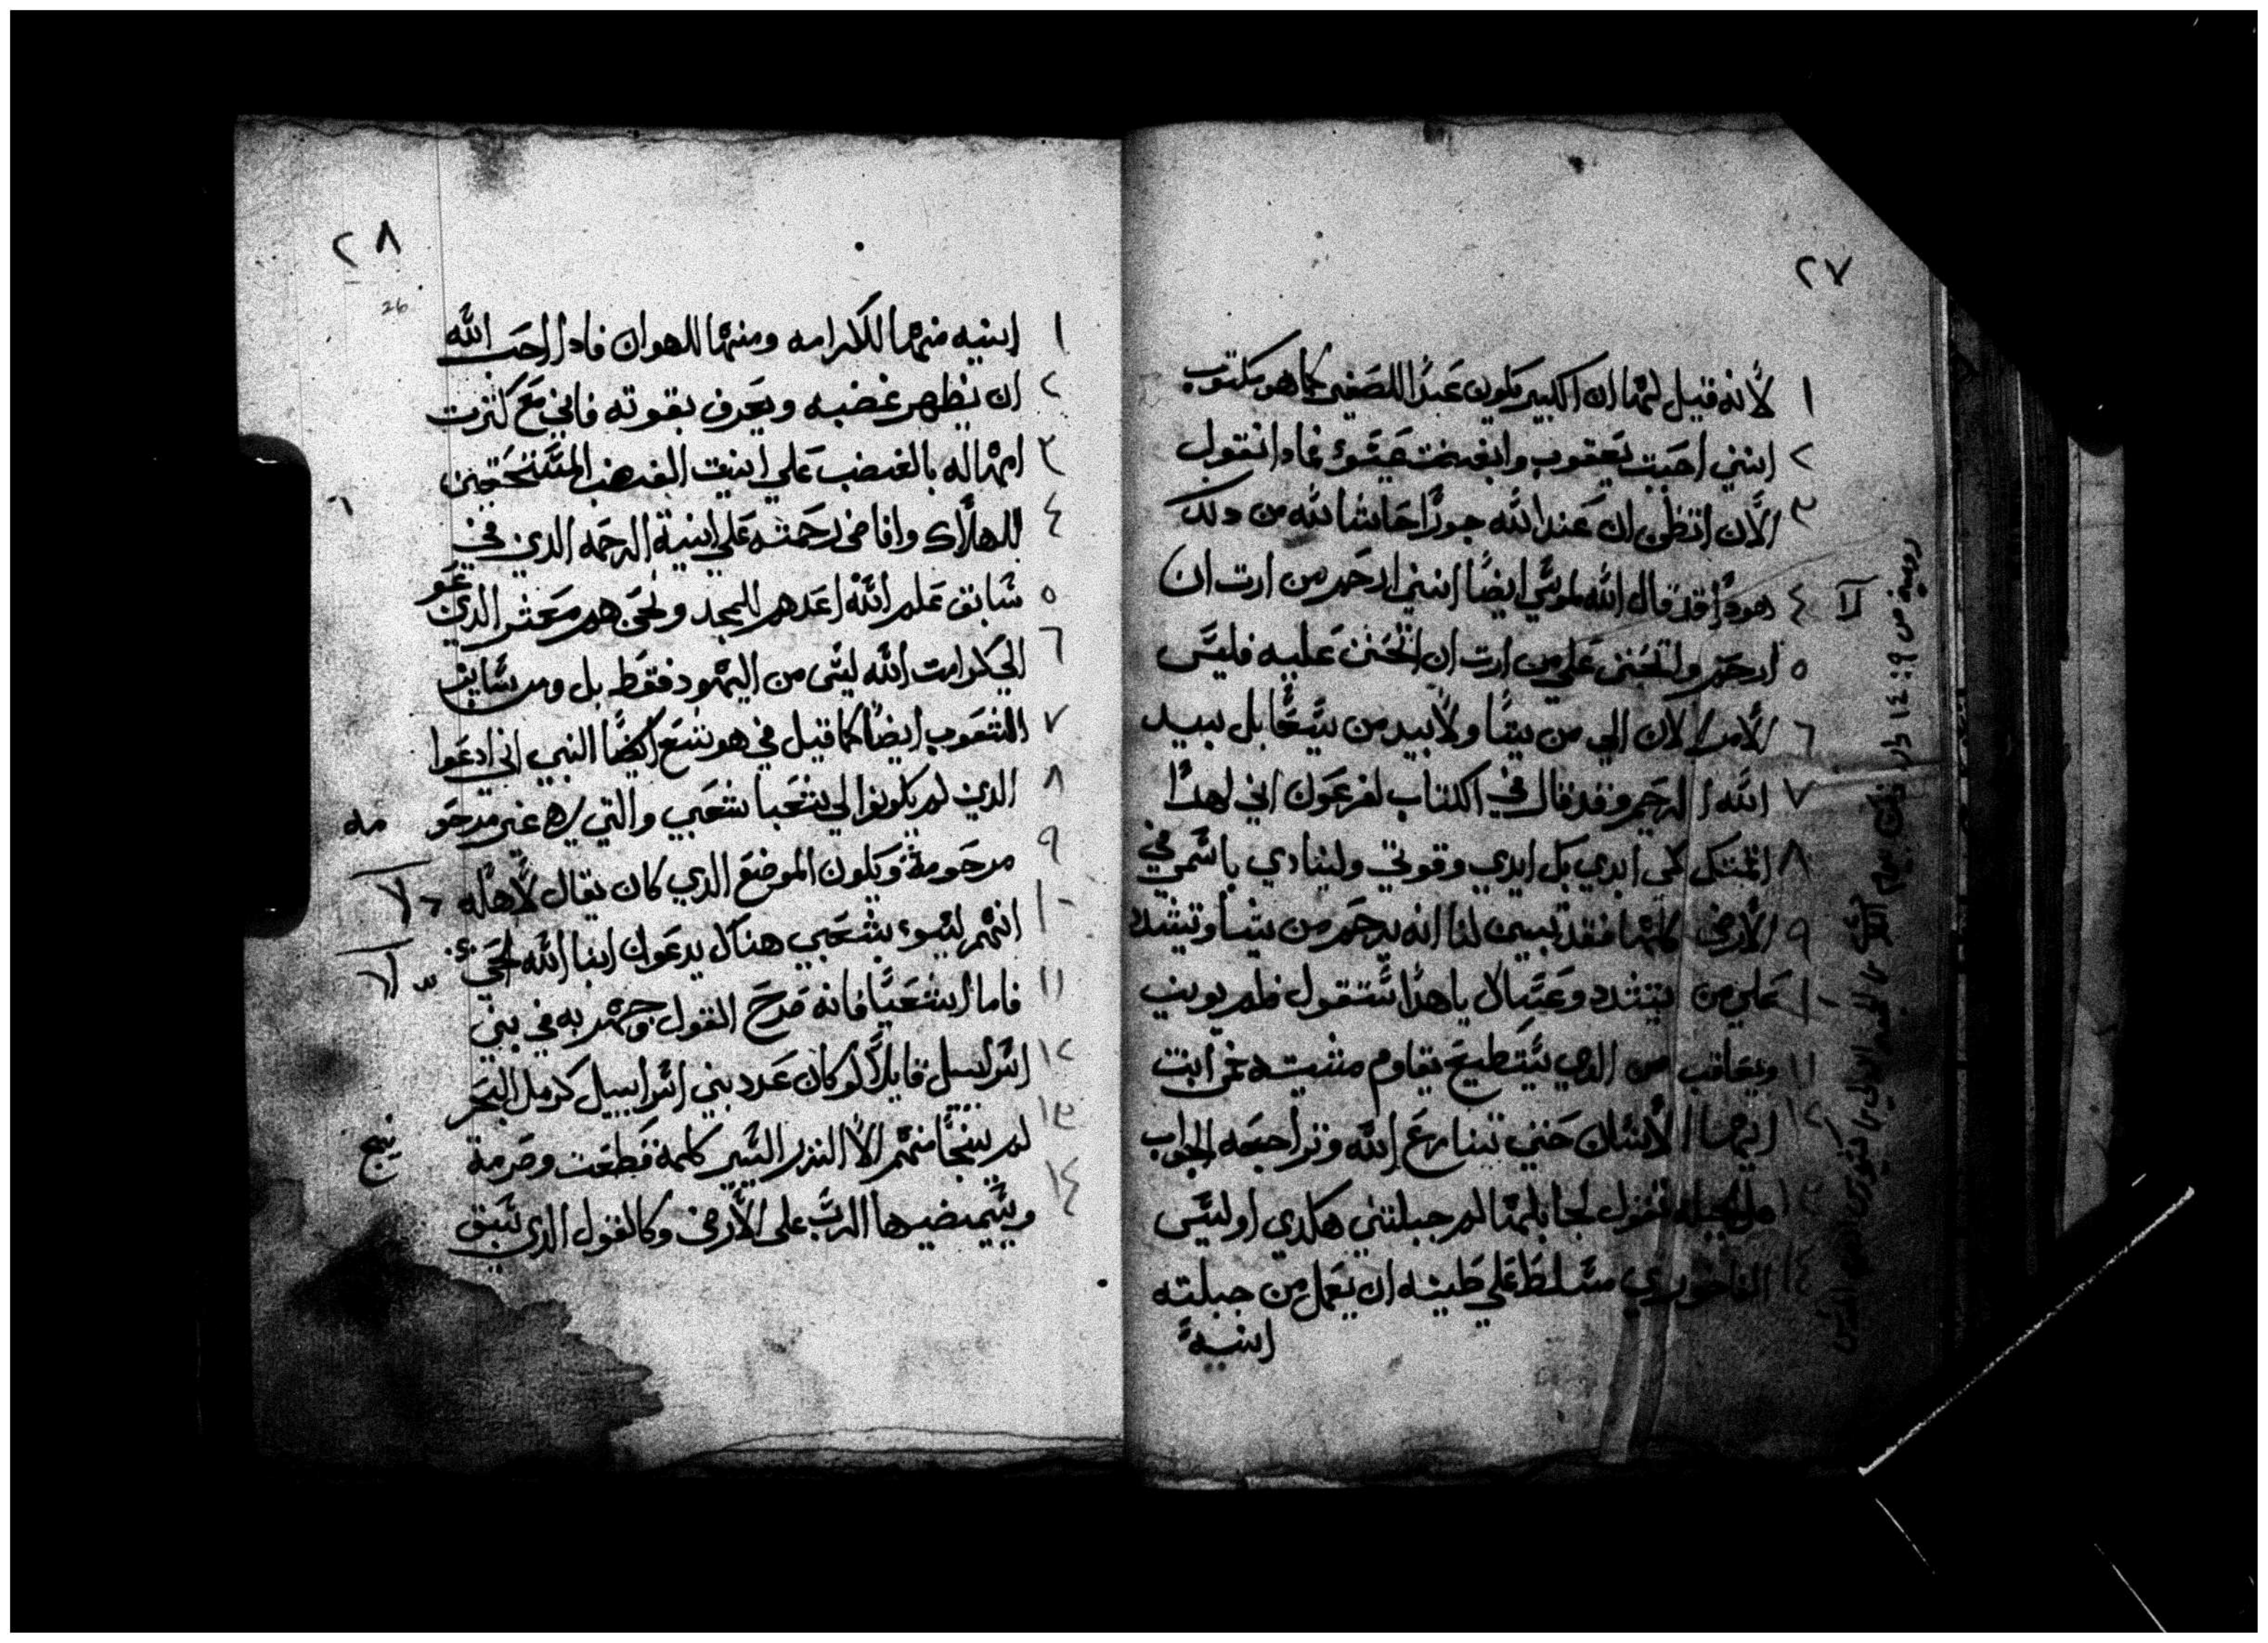 ٢٧
١ لأنه قيل لها ان الكبير يكون عبدًا للصغير كما هو مكتوب
٢ انني احببت يعقوب وابغضت عيسو فماذا نقول
٣ الأن اتظن ان عند الله جورًا حاشا لله من دلك
٤ هودا قد قال الله لموسي ايضًا انني ارحم من ارت ان
٥ ارحم واتحنن علي من ارت ان اتحنن عليه فليس
٦ الأمر الان الي من يشا ولا بيد من يسعا بل بيد
٧ الله الرحيم وقد قال في الكتاب لفرعون اني لهدا
٨ اقمتك لكي ابدي بك ايدي وقوتي ولينادي باسمي في
٩ الأرض كلها فقد تبين لنا انه يرحم من يشا ويشدد
١٠ علي من يشدد وعساك ياهدا ستقول فلم يونب
١١ ويعاقب من الدي يستطيع يقاوم مشيته فمن انت
١٢ ايها الأنسان حتي تنازع الله وتراجعه الجواب
١٣ هل الجبله تقول لجابلها لم جبلتني هكدي اوليس
١٤ الفاخوري مسلط علي طينه ان يعمل من جبلته
انيةً
٢٨
26
١ انيه منها للكرامه ومنها للهوان فادا احب الله
٢ ان يظهر غضبه ويعرف بقوته فاني مع كترت
٣ امهاله بالغضب علي انيت الغضب المستحقين
٤ للهلاك وافاض رحمته علي انية الرحمه الدي في
٥ سابق علم الله اعدهم للمجد ونحن هم معشر الدين دعو
٦ الي كرامت الله ليس من اليهود فقط بل ومن ساير
٧ الشعوب ايضًا كما قيل في هوشع ايضًا النبي اني ادعوا
٨ الدين لم يكونوا لي شعبا شعبي والتي هي غير مرحو مه
٩ مرحومة ويكون الموضع الدي كان يقال لأهله
١٠ انتم لستو بشعبي هناك يدعون ابنا الله الحي
١١ فاما اشعيا فانه صرح القول وجهر به في بني
١٢ اسراييل قايلاً لو كان عدد بني اسراييل كرمل البحر
١٣ لم ينجا منهم الا النزر اليسير كلمة قطعت وصرمة
١٤ وسيمضيها الرب علي الأرض وكالقول الدي سبق